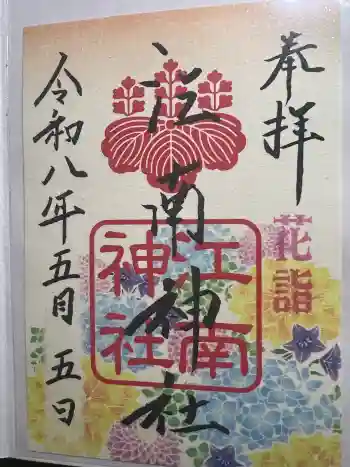 奉拝
花詣
江南神社
江南神社
令和八年五月五日